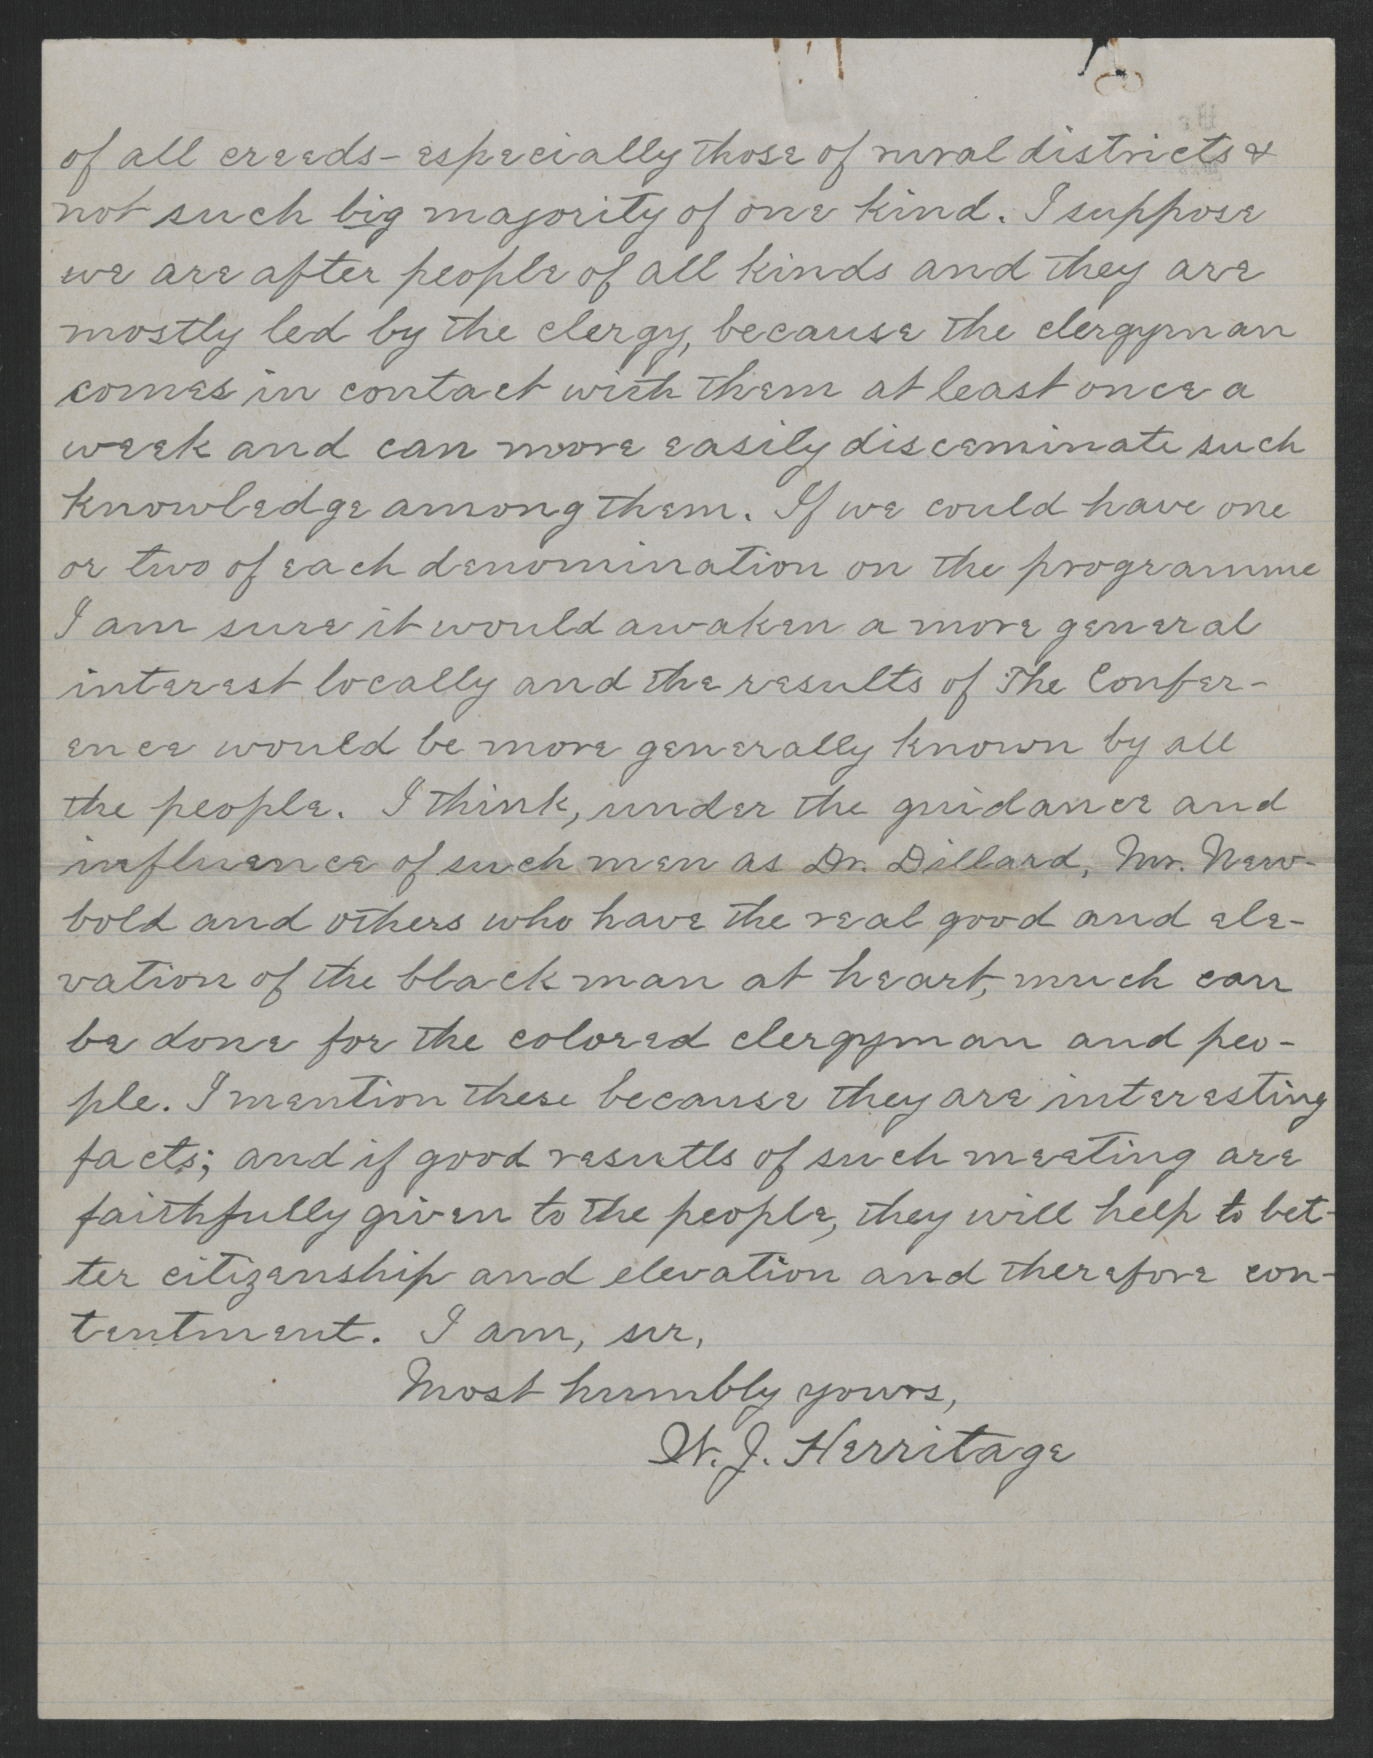 of all creeds - especially those of rural districts &
not such big majority of one kind. I suppose
we are after people of all kinds and they are
mostly led by the clergy, because the clergyman
comes in contact with them at least once a
week and can more easily disceminate such
knowledge among them. If we could have one
or two of each denomination on the programme
I am sure it would awaken a more general
interest locally and the results of The Confer-
ence would be more generally known by all
the people. I think, under the guidance and
influence of such men as Dr. Dillard, Mr. New-
bold and others who have the real good and ele-
vation of the black man at heart, much can
be done for the colored clergyman and peo-
ple. I mention these because they are interesting
facts; and if good resutls of such meeting are
faithfully given to the people, they will help to bet-
ter citizenship and elevation and therefore con-
tentment. I am, sir,
Most humbly yours,
W. J. Herritage